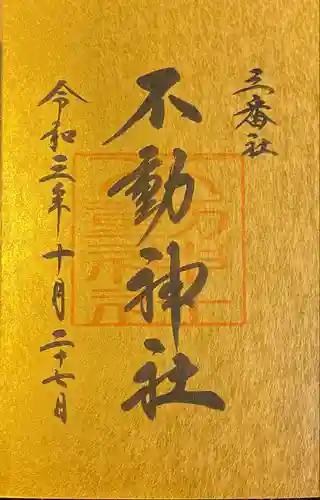 三番社
不動神社
令和三年十月二十七日